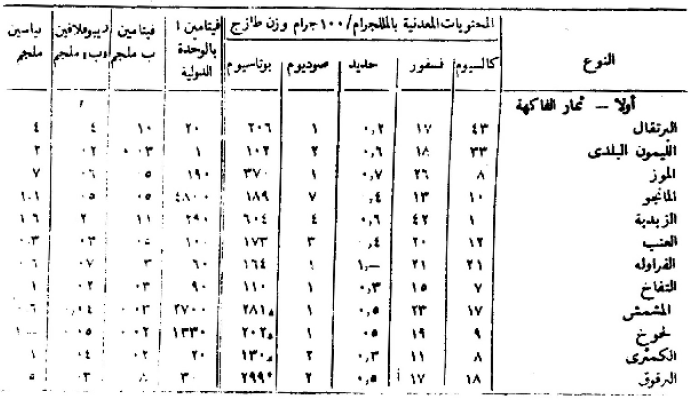 النوع | المحتويات المعدنية بالمللجرام/١٠٠ جرام وزن طازج | فيتامين أ بالوحدة الدولية | فيتامين ب ملجم | ريبوفلافين «ب» ملجم | نياسين ملجم
كالسيوم | فسفور | حديد | صوديوم | بوتاسيوم
أولا – ثمار الفاكهة
البرتقال ٤٣ ١٧ ٠,٢ ١ ٢٠٦ ٢٠ ١٠ ٤ ٤
الليمون البلدى ٣٣ ١٨ ٠,٦ ٢ ١٠٢ ١ ٠٠٣ ٠٢ ٢
الموز ٨ ٢٦ ٠,٧ ١ ٣٧٠ ١٩٠ ٠٥ ٠٦ ٧
المانجو ١٠ ١٣ ٠,٤ ٧ ١٨٩ ٤٨٠٠ ٠٥ ٠٥
الزبدية ١ ٤٢ ٠,٦ ٤ ٦٠٤ ٢٩٠ ١١ ٢ ١٦
العنب ١٢ ٢٠ ٠,٤ ٣ ١٧٣ ١٠٠ ٠٥ ٠٣ ٠٠٣
الفراوله ٢١ ٢١ ١,– ١ ١٦٤ ٦٠ ٣ ٠٧ ٠٦
التفاح ٧ ١٥ ٠,٣ ١ ١١٠ ٩٠ ٠٣ ٠٢ ١
المشمش ١٧ ٢٣ ٠,٥ ١ ٢٨١ ٢٧٠٠ ٠٠٣ ٠,٠٤ ٠٦
لخوخ ٩ ١٩ ٠٥ ١ ٢٠٢ ١٣٣٠ ٠٠٢ ٠٠٥
الكمثرى ٨ ١١ ٠,٣ ٢ ١٣٠ ٢٠ ٠٢ ٠٤ ١
البرقوق ١٨ ١٧ ٠,٥ ٢ ٢٩٩* ٣٠ ٨ ٠٣ ٥